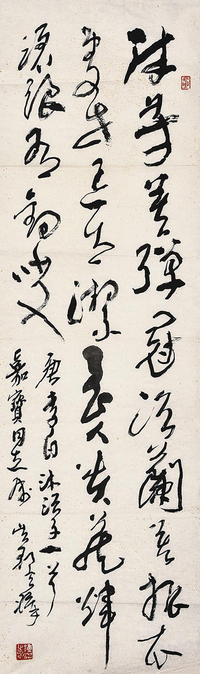 沐芳莫彈冠浴蘭莫振衣
處世忌太潔至人貴藏輝
滄浪有釣叟
唐李白沐浴子一首
嘉寶同志屬